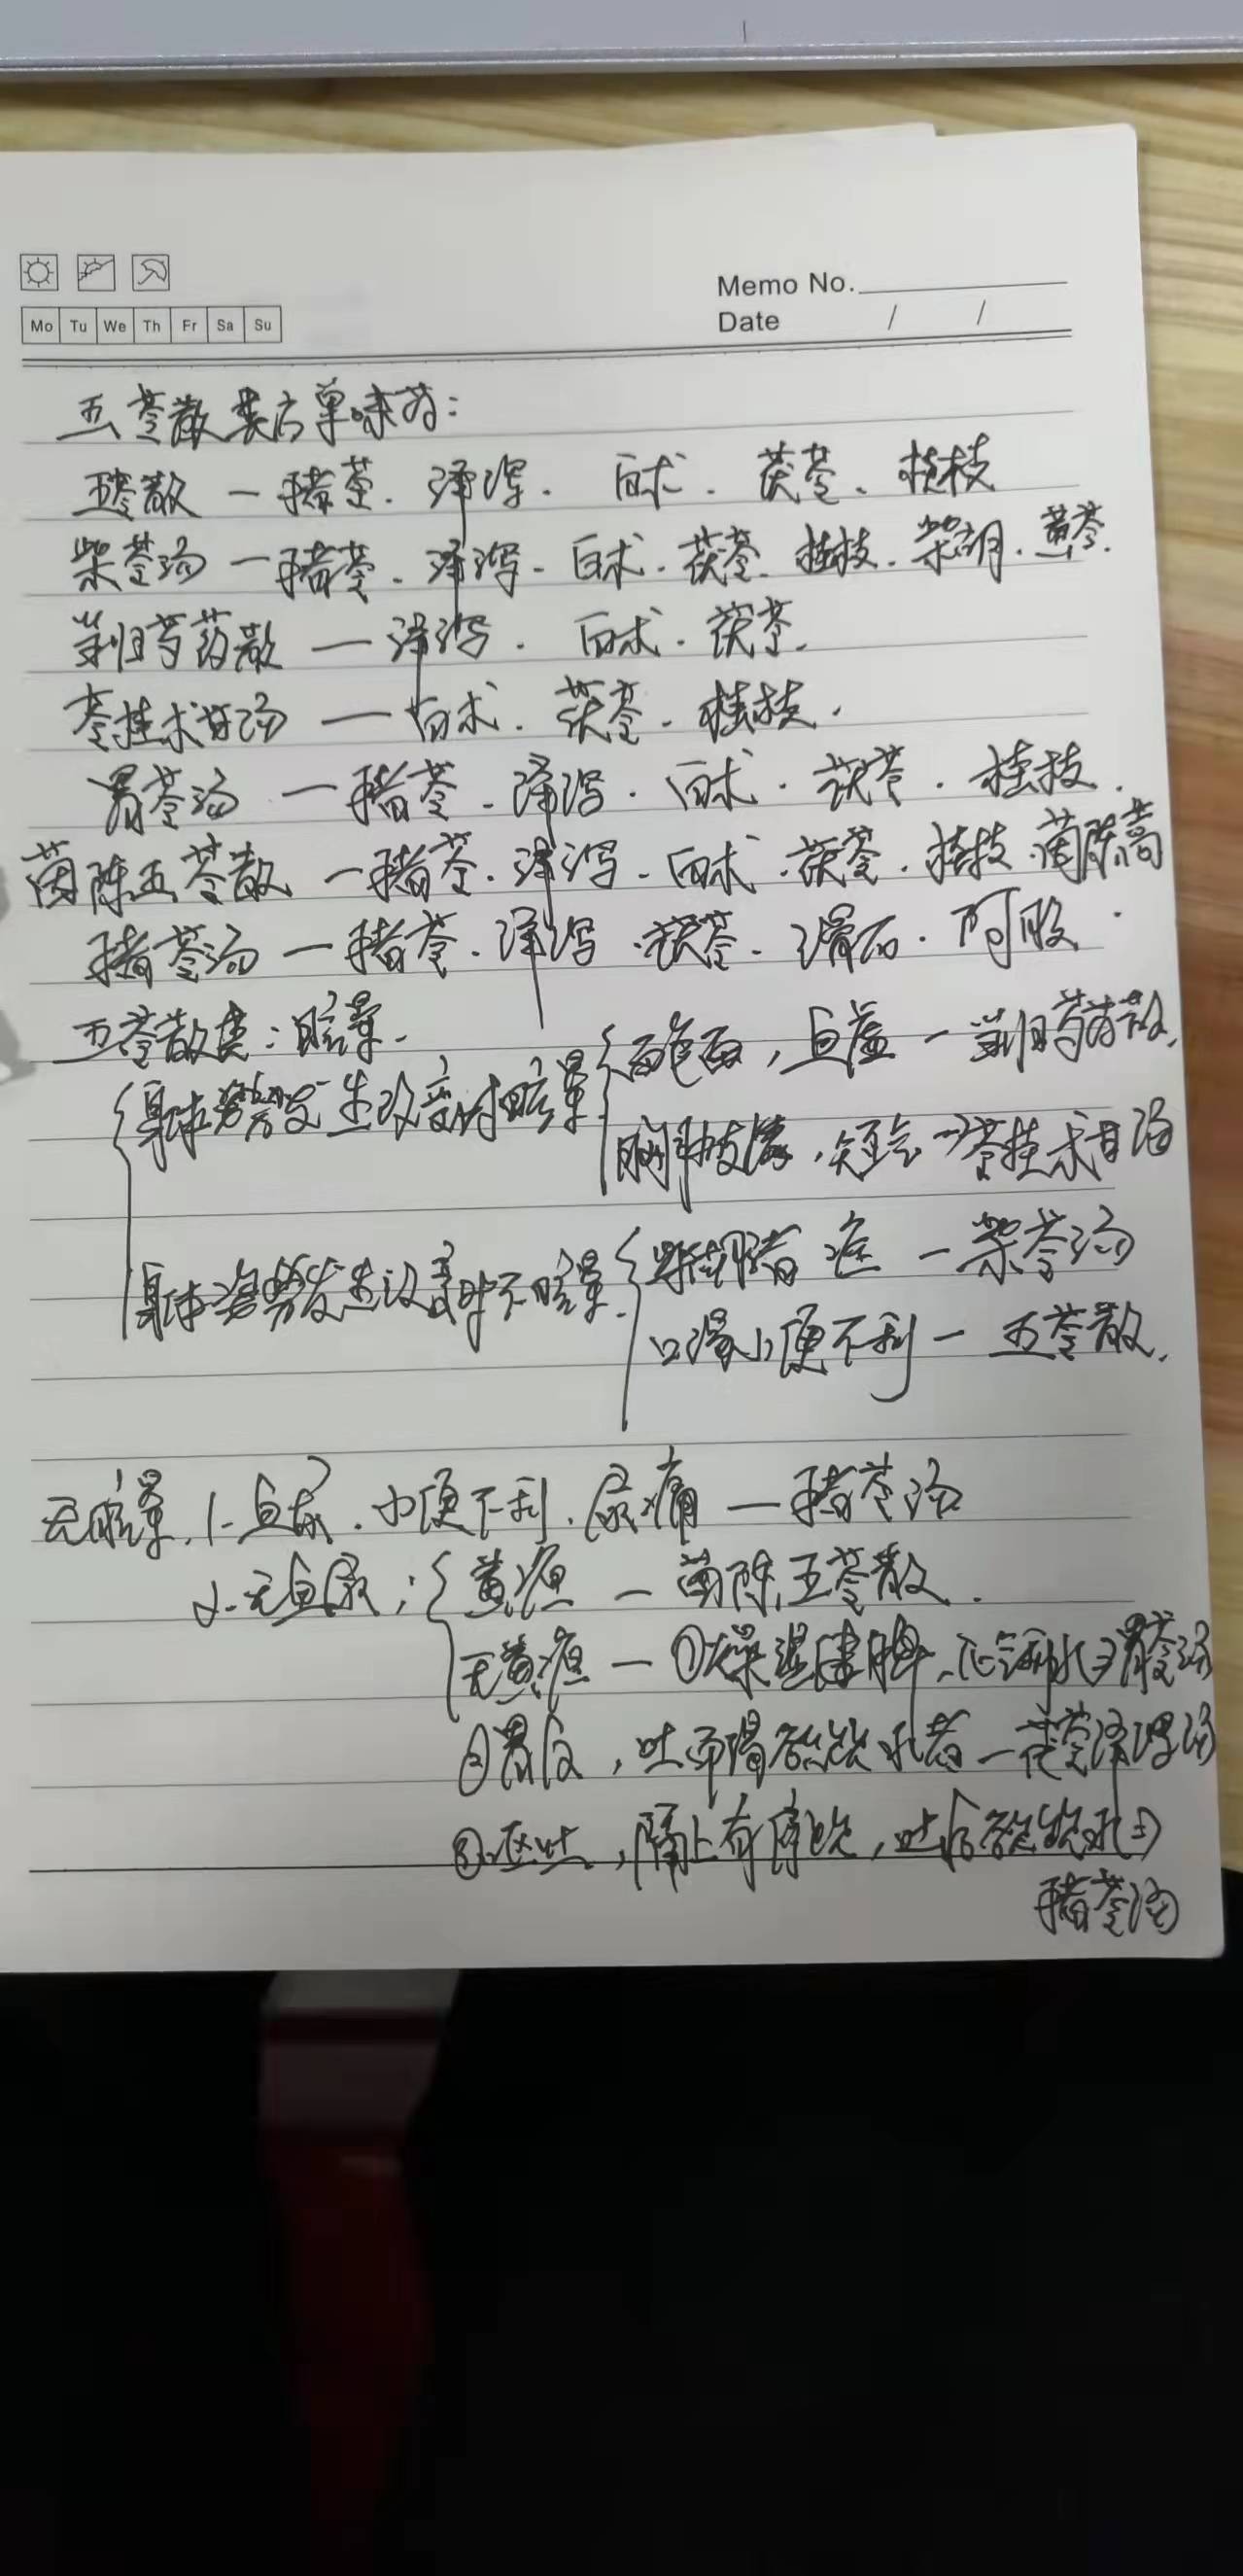 Memo No.
Mo Tu We Th Fr Sa Su
Date / /
五苓散类方单味药:
五苓散 — 猪苓. 泽泻. 白术. 茯苓. 桂枝
柴苓汤 — 猪苓. 泽泻. 白术. 茯苓. 桂枝. 柴胡. 黄芩.
当归芍药散 — 泽泻. 白术. 茯苓.
苓桂术甘汤 — 白术. 茯苓. 桂枝.
胃苓汤 — 猪苓. 泽泻. 白术. 茯苓. 桂枝.
茵陈五苓散 — 猪苓. 泽泻. 白术. 茯苓. 桂枝. 茵陈蒿
猪苓汤 — 猪苓. 泽泻. 茯苓. 滑石. 阿胶.
五苓散类: 眩晕.
身体姿势发生改变时眩晕
面色白, 血虚 — 当归芍药散.
胸胁支满, 短气 → 苓桂术甘汤
身体姿势发生改变时不眩晕.
柴胡 证 — 柴苓汤
口渴小便不利 — 五苓散.
无眩晕. 1. 血尿. 小便不利. 尿痛 — 猪苓汤
2. 无血尿: 黄疸 — 茵陈五苓散.
无黄疸 — ①燥湿健脾, 化气利水⇒胃苓汤
②胃反, 吐而渴欲饮水者 — 茯苓泽泻汤
③呕吐, 膈上有停饮, 吐后欲饮水⇒
猪苓汤